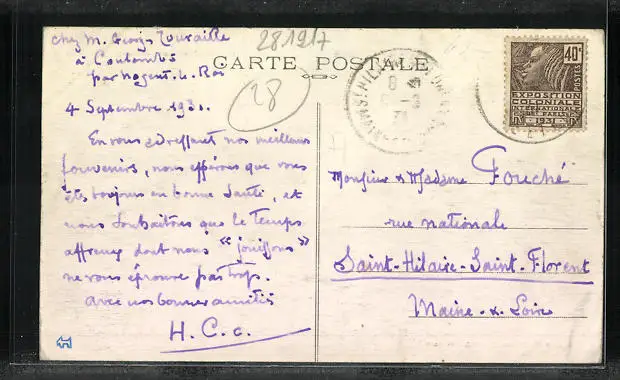 chez M. Georges Touraille
à Coulombs
par Nogent-le-Roi
28.1917
CARTE POSTALE
28
4 Septembre 1931.
En vous adressant nos meilleurs
souvenirs, nous espérons que vous
êtes toujours en bonne santé, et
nous souhaitons que le temps
affreux dont nous "jouissons"
ne vous éprouve pas trop.
Avec nos bonnes amitiés
H. C. c.
40c
POSTES
EXPOSITION
COLONIALE
INTERNATIONALE
DE PARIS
1931
Monsieur & Madame Fouché
rue nationale
Saint-Hilaire-Saint-Florent
Maine-&-Loire